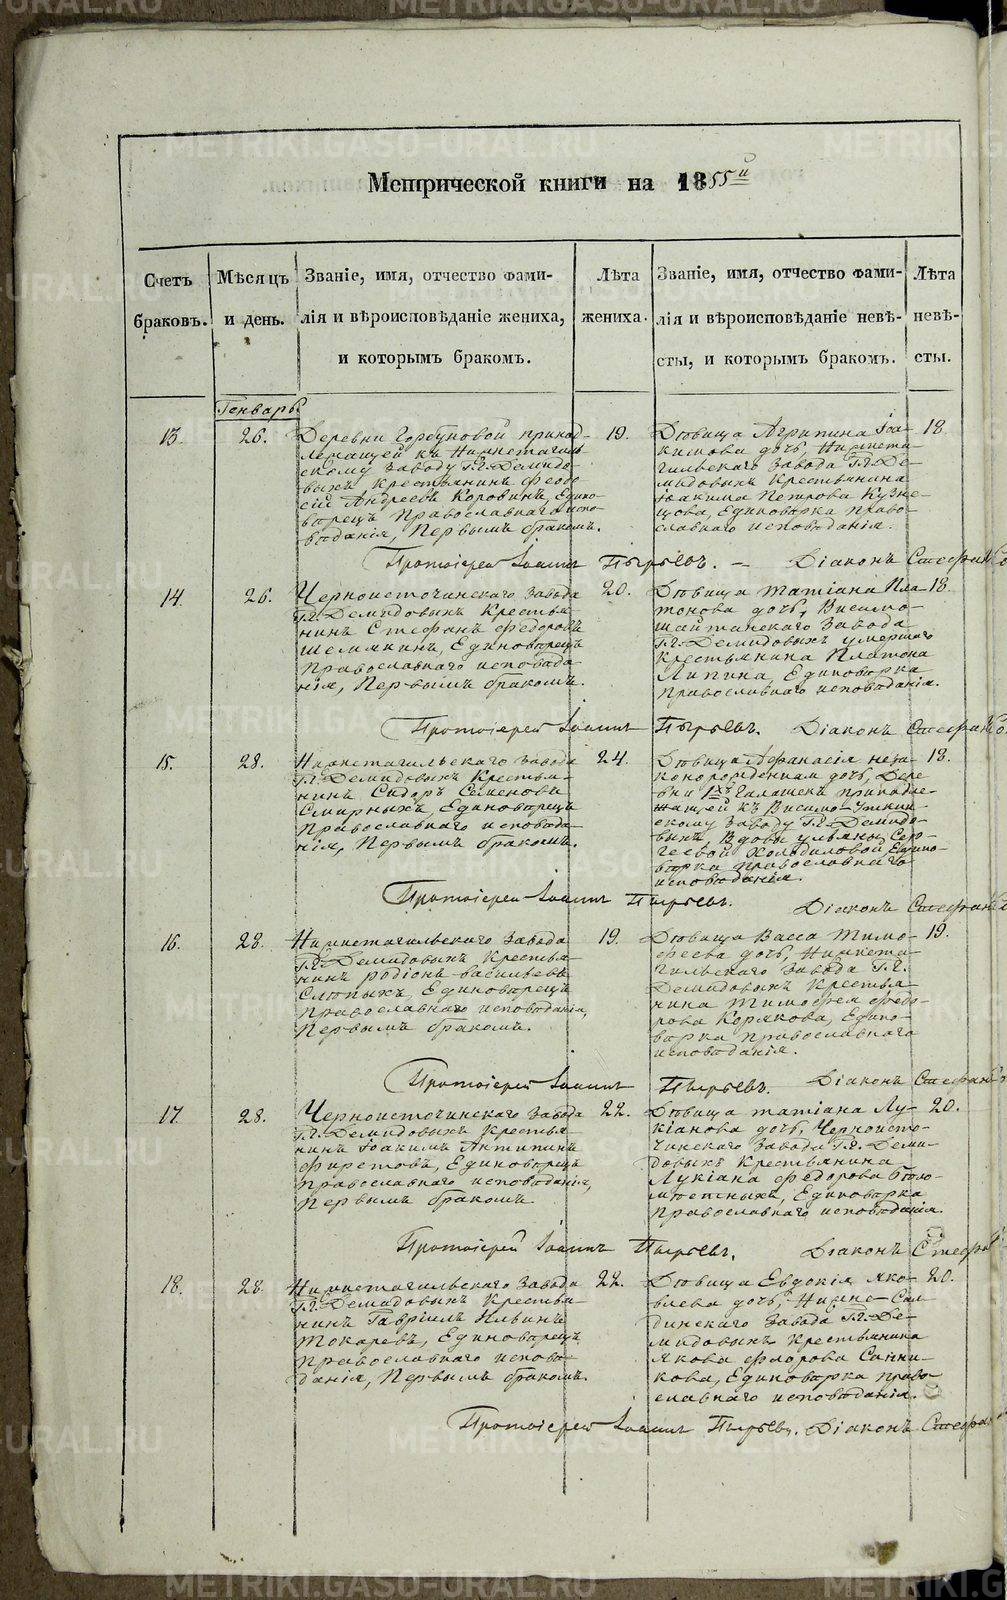 Метрической книги на 1855й
Счетъ браковъ.
Мѣсяцъ и день.
Званіе, имя, отчество фами-
лія и вѣроисповѣданіе жениха,
и которымъ бракомъ.
Лѣта жениха.
Званіе, имя, отчество фами-
лія и вѣроисповѣданіе невѣ-
сты, и которымъ бракомъ.
Лѣта невѣ-
сты.
Генварь
13.
26.
Деревни Горбуновой принад-
лежащей къ Нижнетагиль-
скому заводу Г.г. Демидо-
выхъ крестьянинъ Феодо-
сій Андреевъ Коровинъ, Едино-
верецъ Православнаго испо-
вѣданія, Первымъ бракомъ.
19.
Дѣвица Агрипина Іоа-
кимова дочь, Нижнета-
гильскаго завода Г.г. Де-
мидовыхъ Крестьянина
Іоакима Петрова Кузне-
цова, Единоверка право-
славнаго исповѣданія.
18.
Протоіерей Іоаннъ Пырьевъ. — Діаконъ Стефанъ
14.
26.
Черноисточинскаго завода
Г.г. Демидовыхъ Крестья-
нинъ Стефанъ Федоровъ
Шелямкинъ, Единоверецъ
Православнаго исповѣда-
нія, Первымъ бракомъ.
20.
Дѣвица Татіана Пла-
тонова дочь, Висимо-
шайтанскаго завода
Г.г. Демидовыхъ умершаго
крестьянина Платона
Липина, Единоверка
православнаго исповѣданія.
18.
Протоіерей Іоаннъ Пырьевъ. Діаконъ Стефанъ
15.
28.
Нижнетагильскаго завода
Г.г. Демидовыхъ Крестья-
нинъ Сидоръ Семеновъ
Смирныхъ, Единоверецъ
Православнаго исповѣда-
нія, Первымъ бракомъ.
24.
Дѣвица Афанасія неза-
коннорожденная дочь, Дере
вни Галашекъ принадле-
жащей къ Висимо-Уткин-
скому заводу Г.г. Демидо-
выхъ Вдовы Ульяны Сер-
геевой Холодиловой, Едино-
верка православнаго
исповѣданія.
18.
Протоіерей Іоаннъ Пырьевъ. Діаконъ Стефанъ
16.
28.
Нижнетагильскаго завода
Г.г. Демидовыхъ Крестья-
нинъ Родіонъ Васильевъ
Слѣпыхъ, Единоверецъ
православнаго исповѣданія,
Первымъ бракомъ.
19.
Дѣвица Васса Тимо-
феева дочь, Нижнета-
гильскаго завода Г.г.
Демидовыхъ Крестья-
нина Тимофея Федо-
рова Корякова, Едино-
верка православнаго
исповѣданія.
19.
Протоіерей Іоаннъ Пырьевъ. Діаконъ Стефанъ
17.
28.
Черноисточинскаго завода
Г.г. Демидовыхъ Крестья-
нинъ Іоакимъ Антипинъ
Фирстовъ, Единоверецъ
православнаго исповѣданія,
Первымъ бракомъ
22.
Дѣвица Татіана Лу-
кіанова дочь, Черноисто-
чинскаго завода Г.г. Деми-
довыхъ крестьянина
Лукіана Федорова Бѣло-
мѣстныхъ, Единоверка
православнаго исповѣданія.
20.
Протоіерей Іоаннъ Пырьевъ. Діаконъ Стефа
18.
28
Нижнетагильскаго завода
Г.г. Демидовыхъ Крестья-
нинъ Гавріилъ Ильинъ
Токаревъ, Единоверецъ
православнаго исповѣ-
данія, Первымъ бракомъ.
22.
Дѣвица Евдокія Яко-
влева дочь, Нижне-Сал-
динскаго завода Г.г. Де-
мидовыхъ крестьянина
Якова Флорова Санни-
кова, Единоверка право
славнаго исповѣданія.
20.
Протоіерей Іоаннъ Пырьевъ. Діаконъ Стефан
METRIKI.GASO-URAL.RU